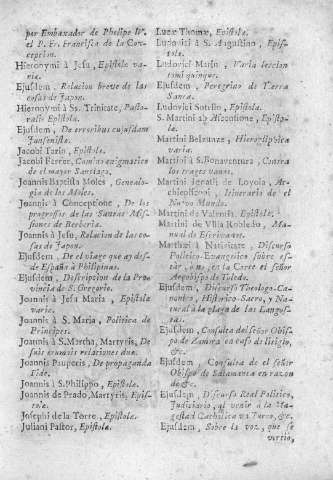 por Embaxador de Phelipe IV.
el P. Fr. Francisco de la Con-
cepcion.
Hieronymi à Jesu, Epistolæ va-
riæ.
Ejusdem, Relacion breve de las
cosas de Japon.
Hieronymi à Ss. Trinitate, Pasto-
ralis Epistola.
Ejusdem, De erroribus cujusdam
Jansenistæ.
Jacobi Tarin, Epistolæ.
Jacobi Ferrer, Camino enigmatico
de el mayor Santiago.
Joannis Baptista Moles, Genealo-
gia de los Moles.
Joannis à Conceptione, De los
progressos de las Santas Mis-
siones de Berberia.
Joannis à Jesu, Relacion de las co-
sas de Japon.
Ejusdem, De el viage que ay des-
de España à Philipinas.
Ejusdem, Descripcion de la Pro-
vincia de S. Gregorio.
Joannis à Jesu Maria, Epistolæ
variæ.
Joannis à S. Maria, Politica de
Principes.
Joannis à S. Martha, Martyris, De
suis ærumnis relationes duæ.
Joannis Pauperis, De propaganda
Fide.
Joannis à S. Philippo, Epistolæ.
Joannis de Prado, Martyris, Epis-
tolæ.
Josephi de la Torre, Epistolæ.
Juliani Pastor, Epistolæ.
Lucæ Thomæ, Epistolæ.
Ludovici à S. Augustino, Epis-
tolæ.
Ludovici Marin, Varia lectiou
tomi quinque.
Ejusdem, Peregrino de Tierra
Santa.
Ludovici Sotelo, Epistolæ.
S. Martini ab Ascensione, Episto-
læ.
Martini Belzunze, Hieroglyphica
varia.
Martini à S. Bonaventura, Contra
los trages vanos.
Martini Ignatij de Loyola, Ar-
chiepiscopi, Itinerario de el
Nuevo Mundo.
Martini de Valentia, Epistolæ.
Martini de Villa Robledo, Ma-
nual de Escrivanos.
Matthæi à Nativitate, Discurso
Politico-Evangelico sobre es-
tàr, ò no, en la Corte el señor
Arçobispo de Toledo.
Ejusdem, Discurso Theologo-Ca-
nonico, Historico-Sacro, y Na-
tural à la plaga de las Langos-
tas.
Ejusdem, Consulta del señor Obis-
po de Zamora en caso de litigio,
&c.
Ejusdem, Consulta de el señor
Obispo de Salamanca en razon
de &c.
Ejusdem, Discurso Real Politico,
Judiciario, al venir à la Ma-
gestad Catholica un Turco, &c.
Ejusdem, Sobre la voz, que se
vertiò,